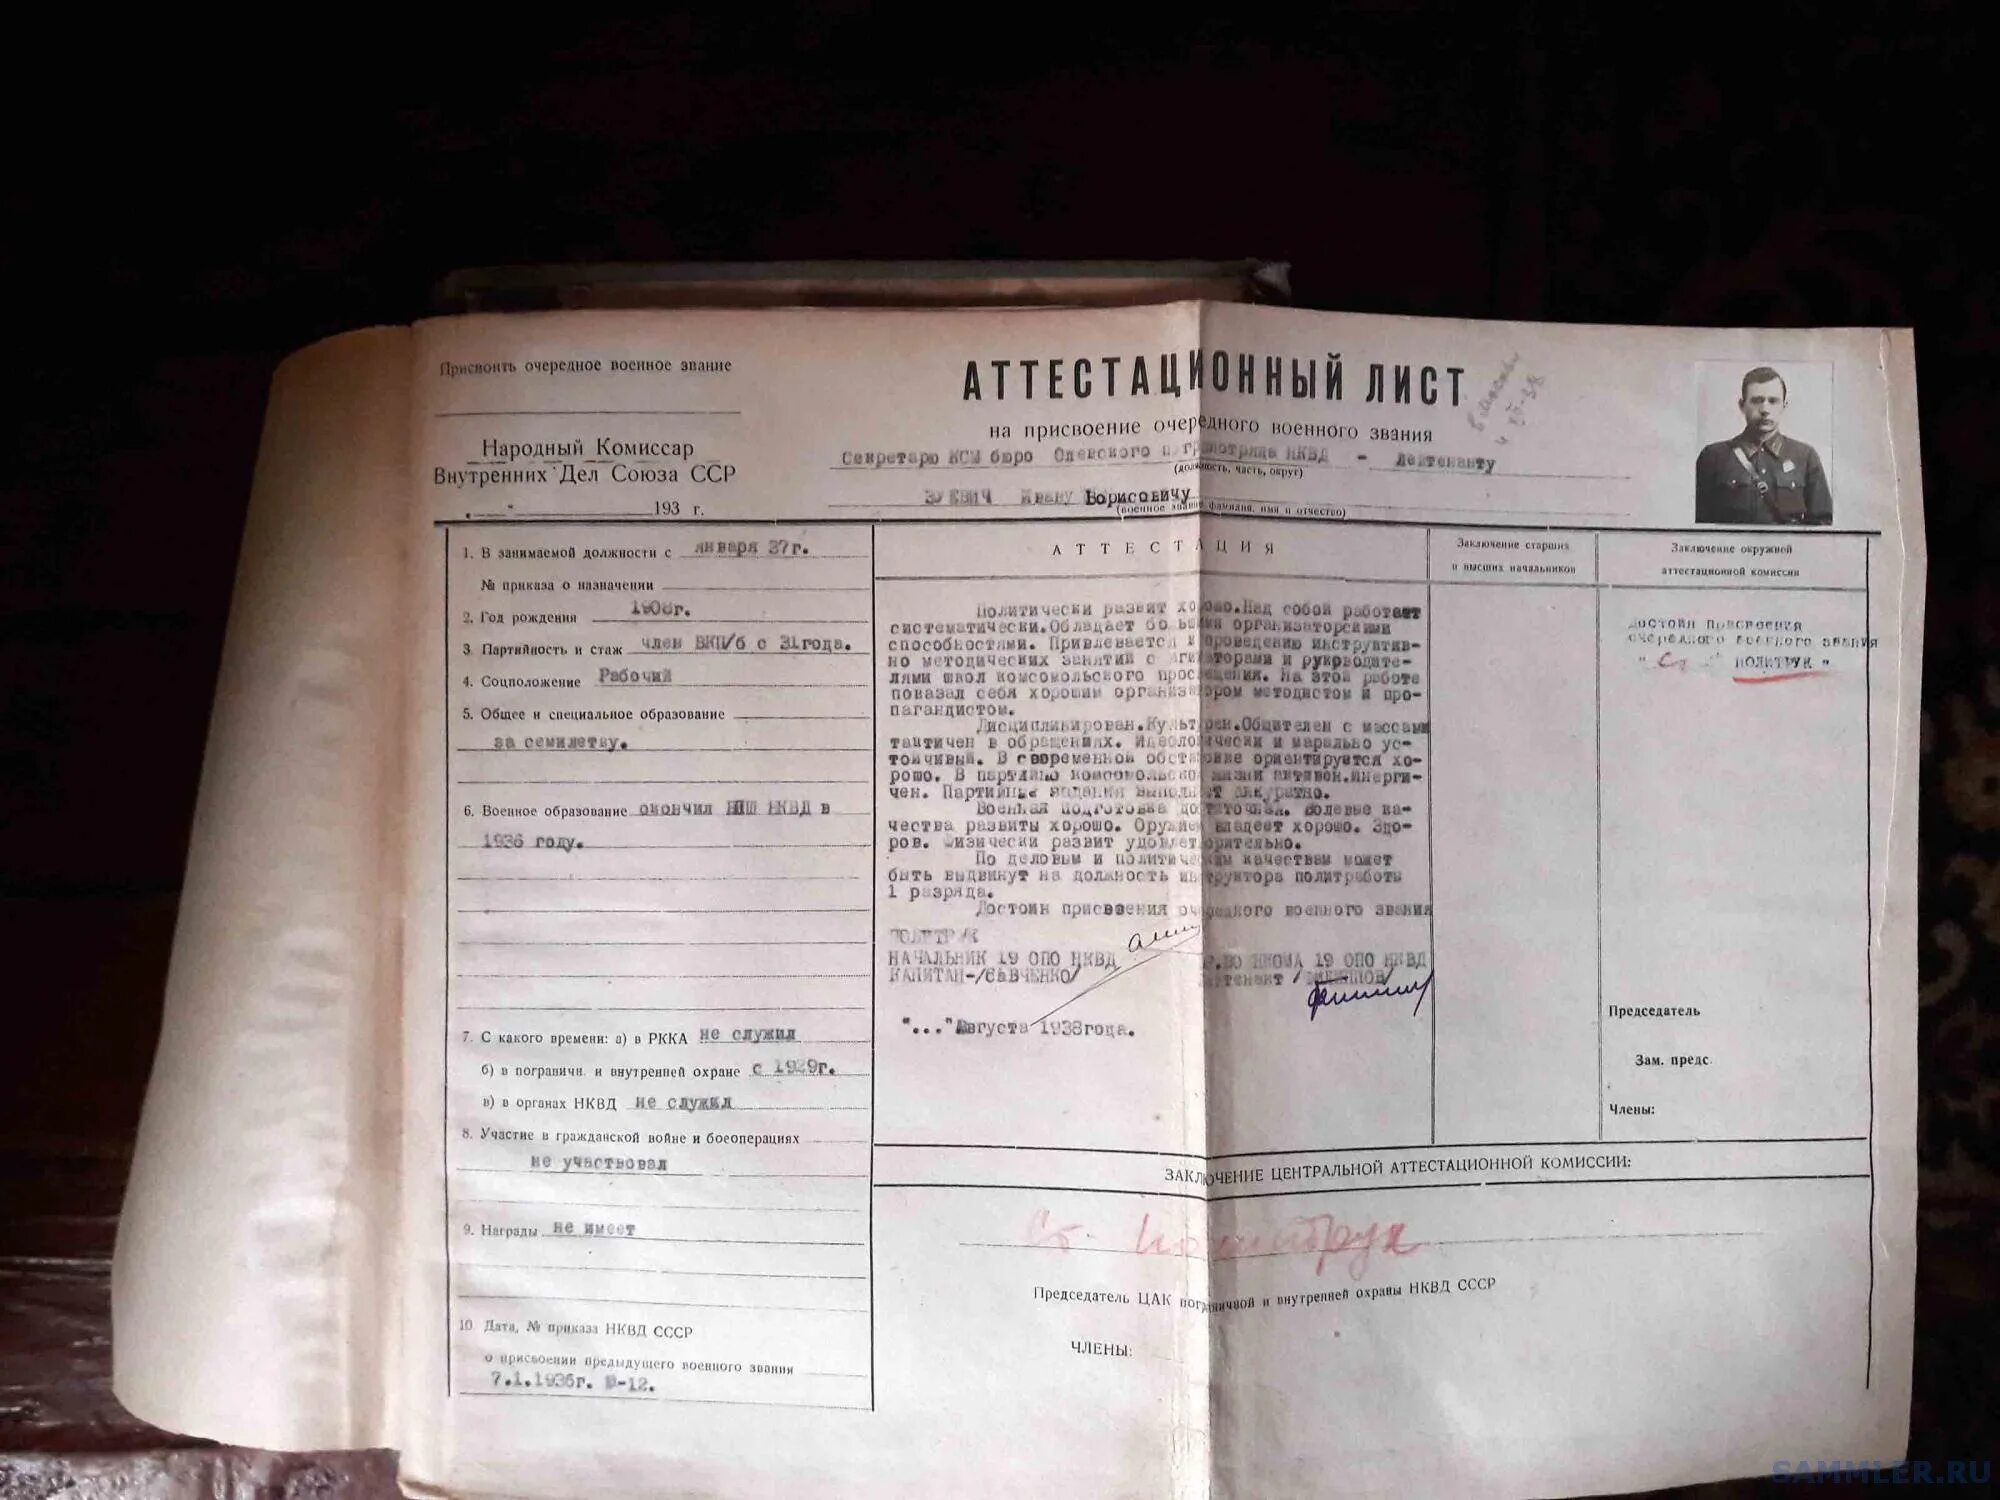 Присвоить очередное военное звание
Народный Комиссар
Внутренних Дел Союза ССР
193 г.
АТТЕСТАЦИОННЫЙ ЛИСТ
на присвоение очередного военного звания
Секретарю КСМ бюро Олевского погранотряда НКВД - Лейтенанту
(должность, часть, округ)
Ивану Борисовичу
(военное звание фамилия, имя и отчество)
1. В занимаемой должности с января 37г.
№ приказа о назначении
2. Год рождения 1908г.
3. Партийность и стаж член ВКП/б с 31года.
4. Соцположение Рабочий
5. Общее и специальное образование
за семилетку.
6. Военное образование окончил НКВД в
1936 году.
7. С какого времени: а) в РККА не служил
б) в погранични. и внутренней охране с 1929г.
в) в органах НКВД не служил
8. Участие в гражданской войне и боеоперациях
не участвовал
9. Награды не имеет
10 Дата, № приказа НКВД СССР
о присвоении предыдущего военного звания
7.1.1936г. -12.
АТТЕСТАЦИЯ
Политически развит хорошо.Над собой работает
систематически.Обладает большими организаторскими
способностями. Привлевается к проведению инструктив-
но методических занятий с агитаторами и руководите-
лями школ комсомольского просвещения. На этой работе
показал себя хорошим организатором методистом и про-
пагандистом.
Дисциплинирован.Культурен.Общителен с массами
тактичен в обращениях. Идеологически и марально ус-
тойчивый. В современной обстановке ориентируется хо-
рошо. В партийно комсомольской жизни активен.инерги-
чен. Партийные задания выполняет аккуратно.
Военная подготовка достаточная. волевые ка-
чества развиты хорошо. Оружием владеет хорошо. Здо-
ров. Физически развит удовлетворительно.
По деловым и политическим качествам может
быть выдвинут на должность инструктора политработы
1 разряда.
Достоин присвоения очередного военного звания
ПОЛИТРУК
НАЧАЛЬНИК 19 ОПО НКВД
КАПИТАН-/САВЧЕНКО/
19 ОПО НКВД
"..." Августа 1938года.
Заключение старших
и высших начальников
Заключение окружной
аттестационной комиссии
Достоин присвоения
очередного военного звания
"Ст. ПОЛИТРУК"
Председатель
Зам. предс.
Члены:
ЗАКЛЮЧЕНИЕ ЦЕНТРАЛЬНОЙ АТТЕСТАЦИОННОЙ КОМИССИИ:
Ст. Политрук
Председатель ЦАК пограничной и внутренней охраны НКВД СССР
ЧЛЕНЫ:
SAMMLER.RU